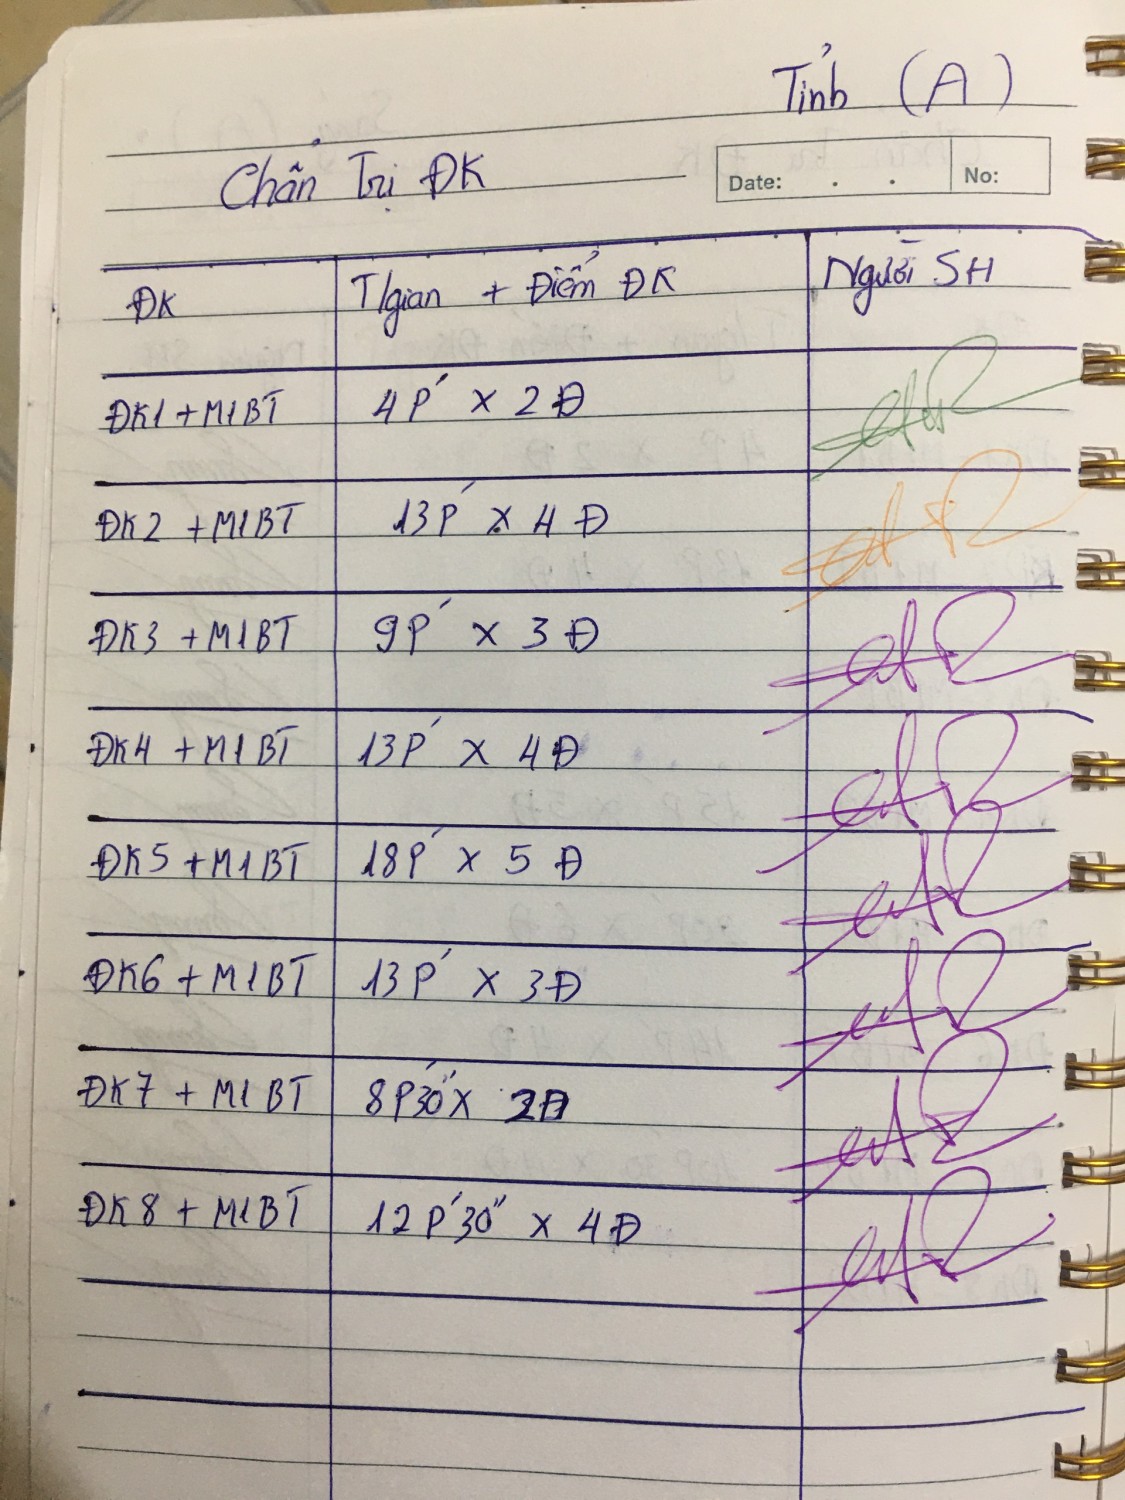 Tỉnh (A)
Chẩn Trị ĐK
Date: . . No:
ĐK T/gian + Điểm ĐK Người SH
ĐK1 + M1BT 4P' x 2Đ
ĐK2 + M1BT 13P' x 4Đ
ĐK3 + M1BT 9P' x 3Đ
ĐK4 + M1BT 13P' x 4Đ
ĐK5 + M1BT 18P' x 5Đ
ĐK6 + M1BT 13P' x 3Đ
ĐK7 + M1BT 8P'30'' x 2Đ
ĐK8 + M1BT 12P'30'' x 4Đ